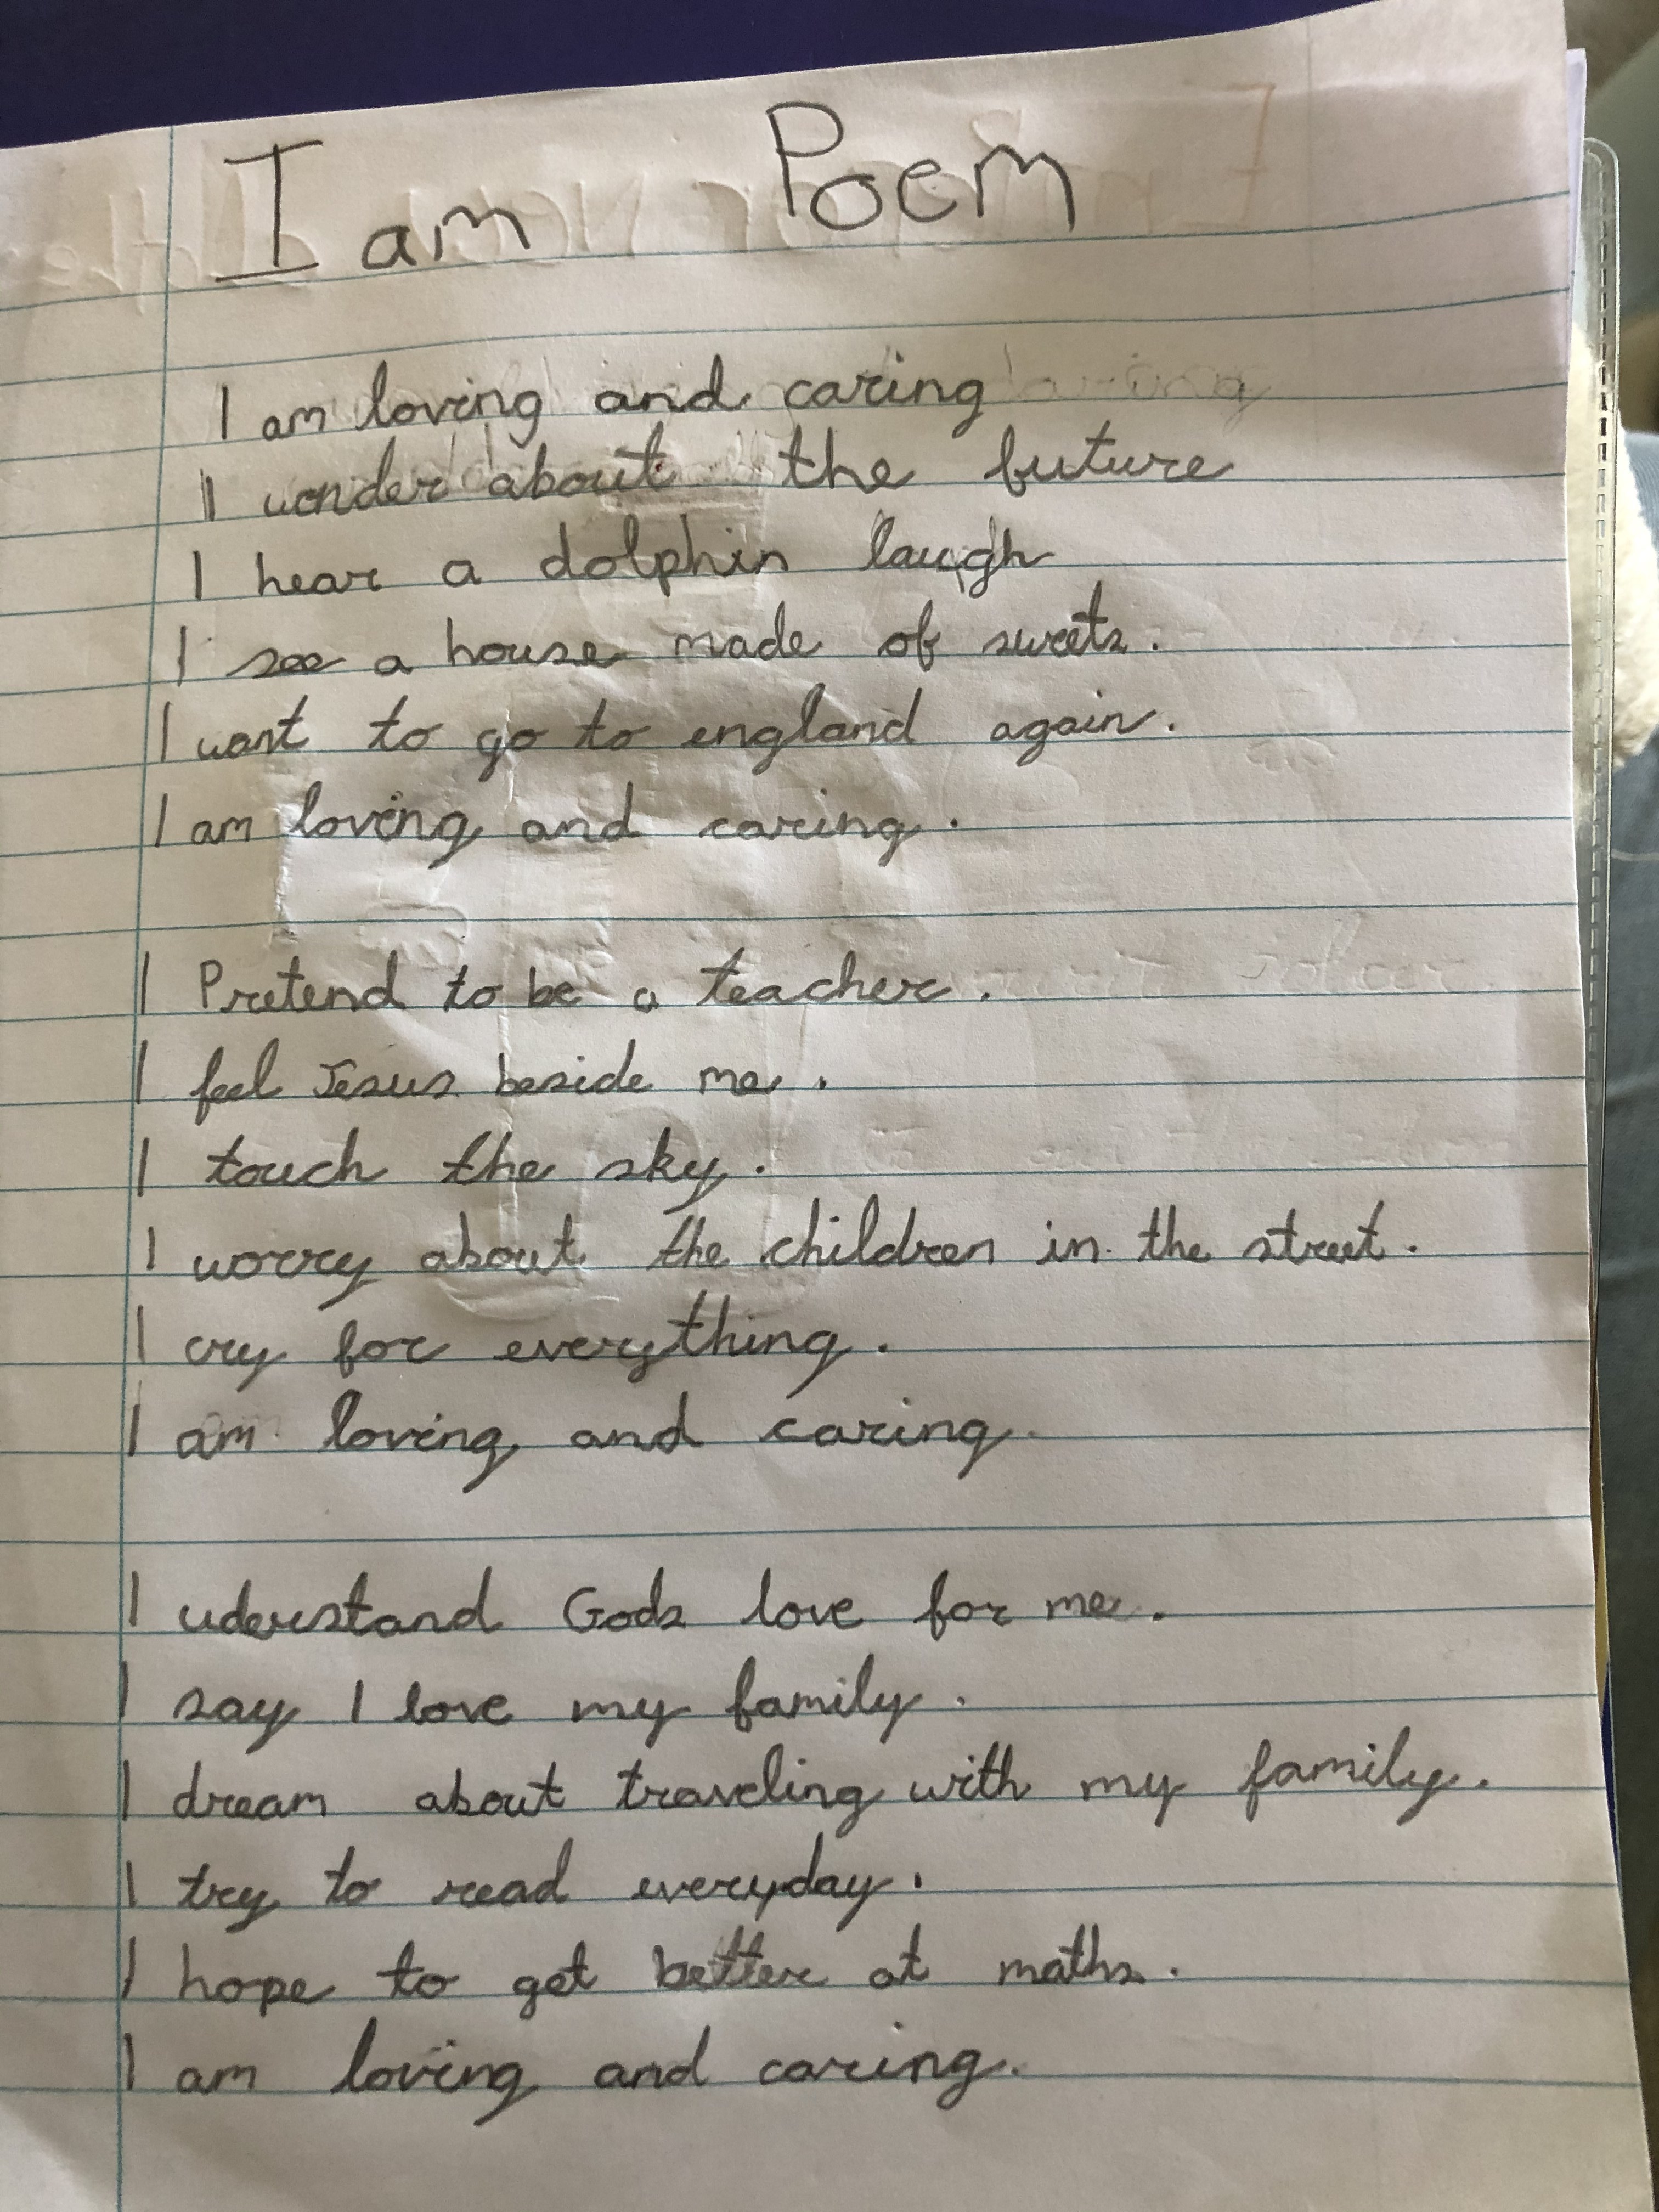 I am Poem
I am loving and caring
I wonder about the future
I hear a dolphin laugh
I see a house made of sweets.
I want to go to england again.
I am loving and caring.
I Pretend to be a teacher.
I feel Jesus beside me.
I touch the sky.
I worry about the children in the street.
I cry for everything.
I am loving and caring.
I uderstand Gods love for me.
I say I love my family.
I dream about traveling with my family.
I try to read everyday.
I hope to get better at maths.
I am loving and caring.